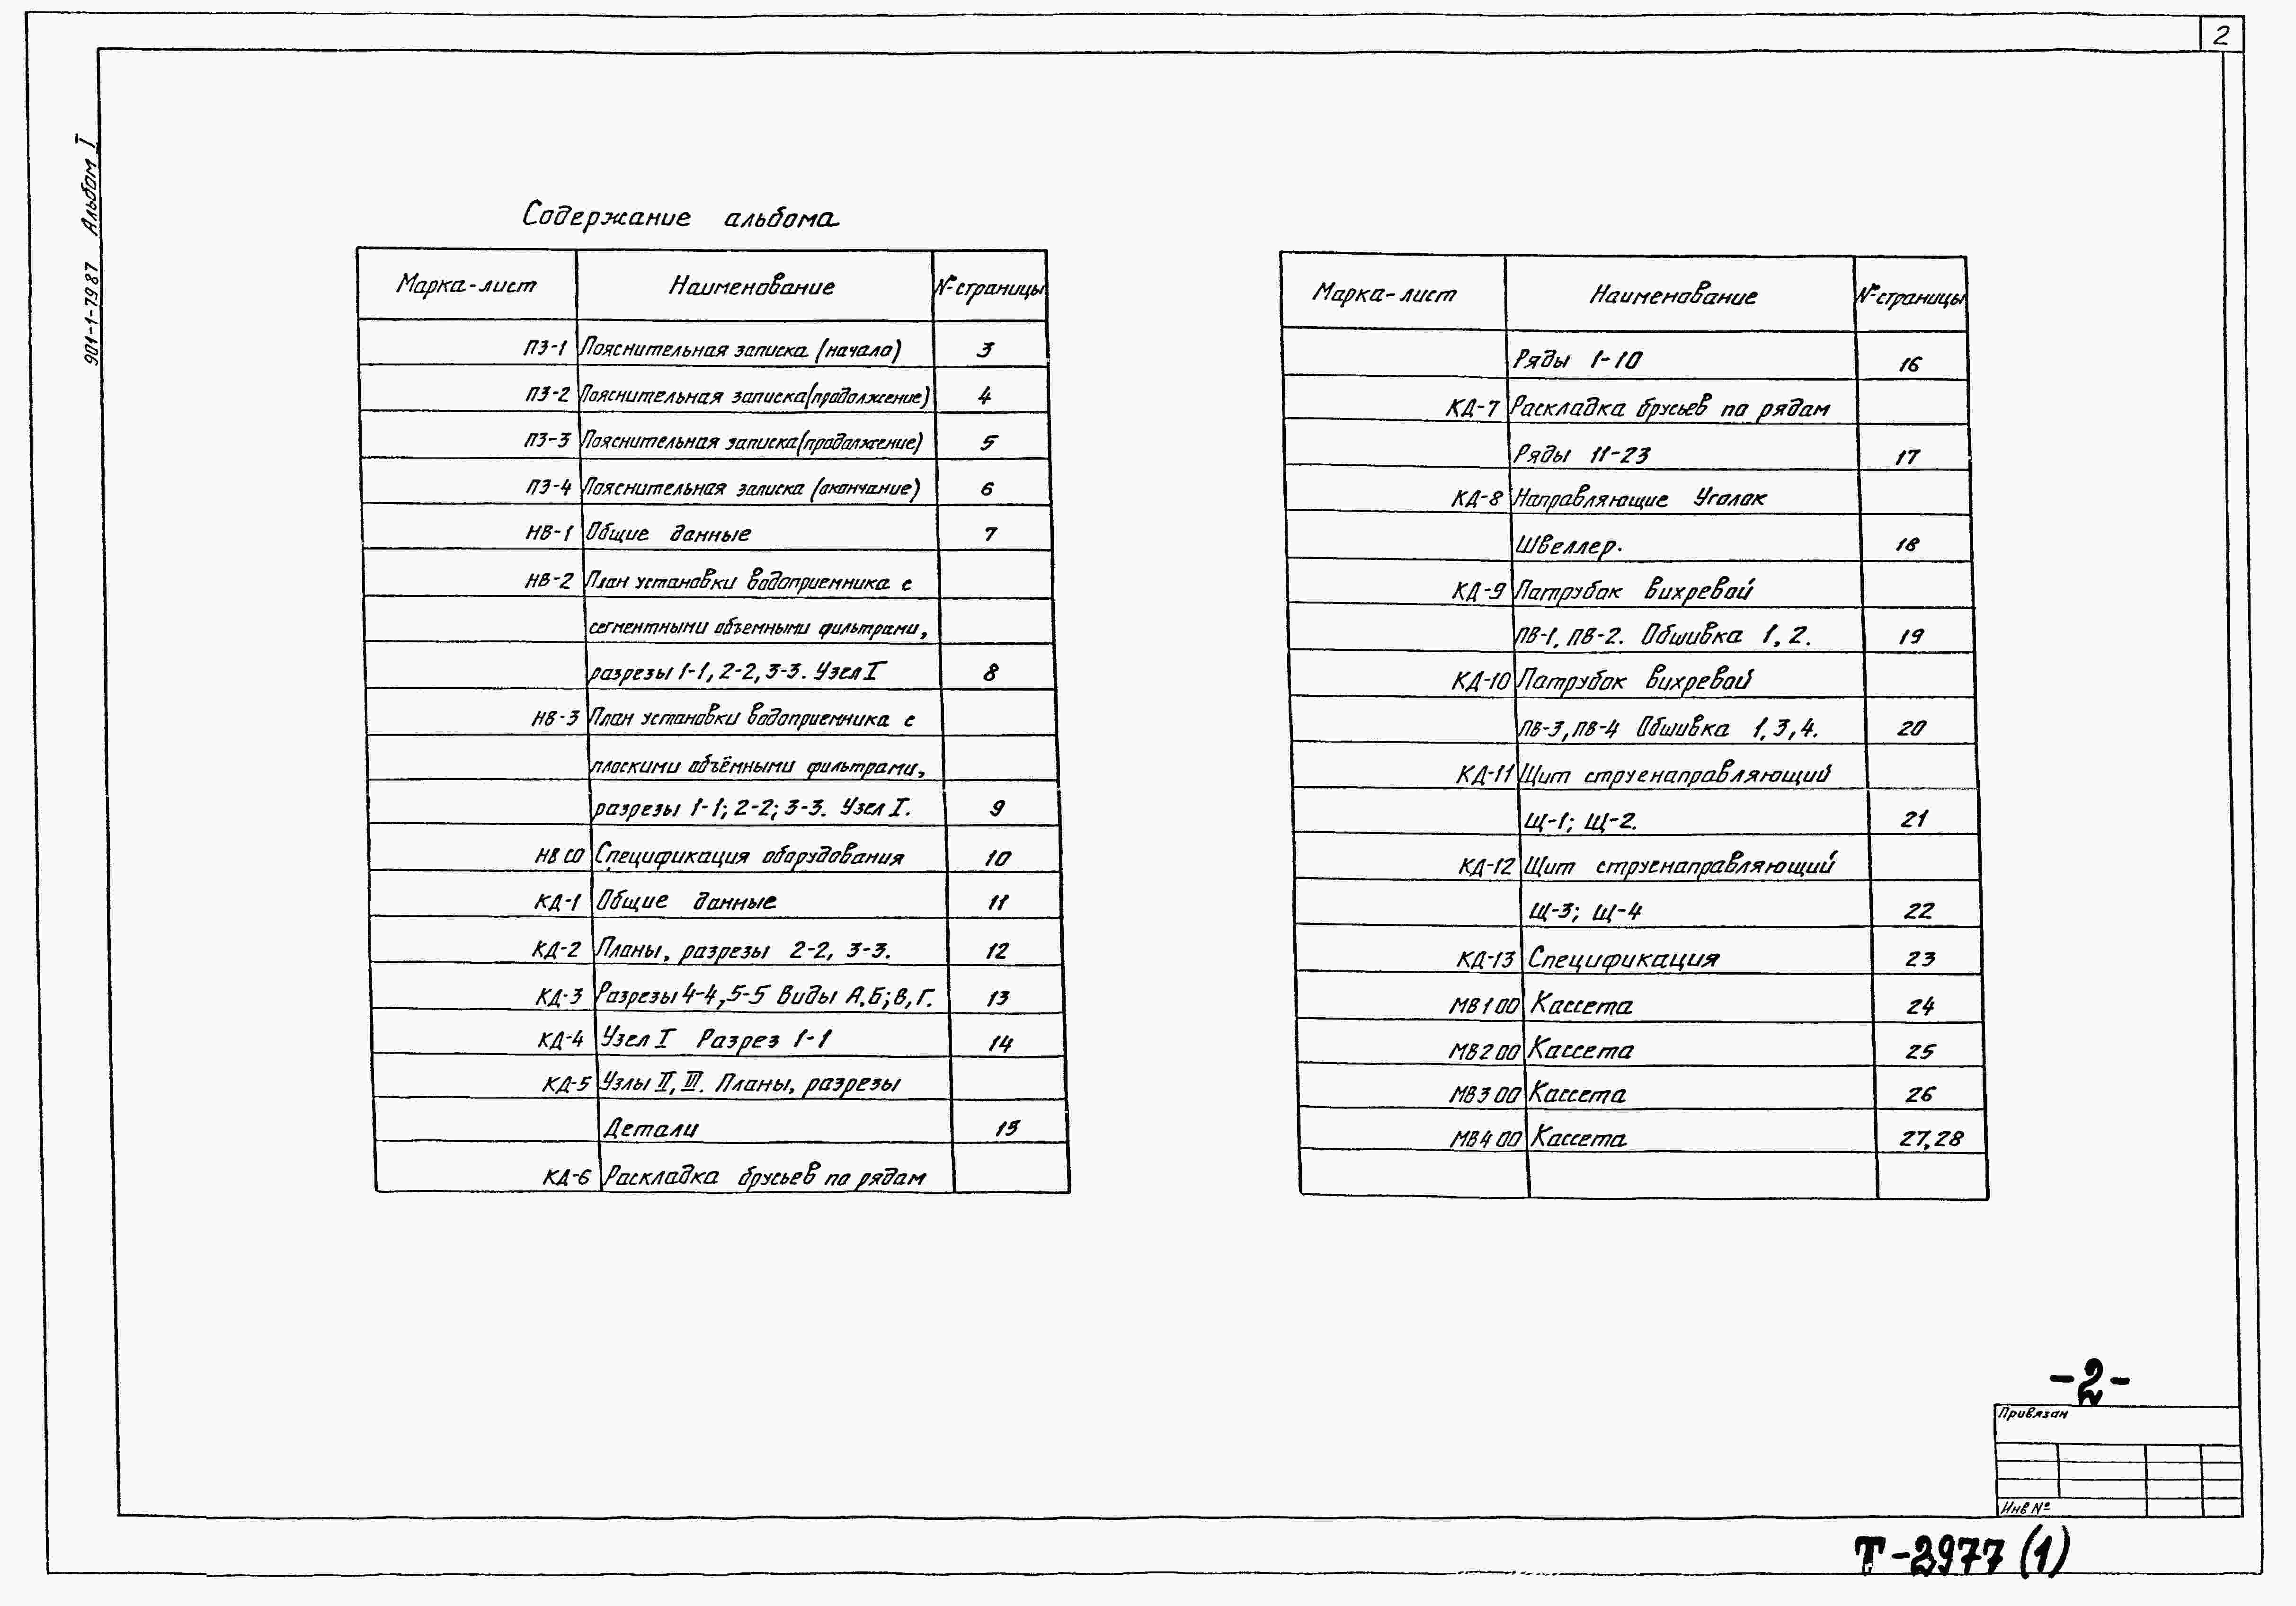 2
901-1-79 87 Альбом I
Содержание альбома
Марка-лист Наименование № страницы
ПЗ-1 Пояснительная записка (начало) 3
ПЗ-2 Пояснительная записка (продолжение) 4
ПЗ-3 Пояснительная записка (продолжение) 5
ПЗ-4 Пояснительная записка (окончание) 6
НВ-1 Общие данные 7
НВ-2 План установки водоприемника с
сегментными объемными фильтрами,
разрезы 1-1, 2-2, 3-3. Узел I 8
НВ-3 План установки водоприемника с
плоскими объёмными фильтрами,
разрезы 1-1; 2-2; 3-3. Узел I. 9
НВ СО Спецификация оборудования 10
КД-1 Общие данные 11
КД-2 Планы, разрезы 2-2, 3-3. 12
КД-3 Разрезы 4-4, 5-5 Виды А,Б; В, Г. 13
КД-4 Узел I Разрез 1-1 14
КД-5 Узлы II, III. Планы, разрезы
Детали 15
КД-6 Раскладка брусьев по рядам
Марка-лист Наименование № страницы
Ряды 1-10 16
КД-7 Раскладка брусьев по рядам
Ряды 11-23 17
КД-8 Направляющие Уголок
Швеллер. 18
КД-9 Патрубок вихревой
ПВ-1, ПВ-2. Обшивка 1, 2. 19
КД-10 Патрубок вихревой
ПВ-3, ПВ-4 Обшивка 1, 3, 4. 20
КД-11 Щит струенаправляющий
Щ-1; Щ-2. 21
КД-12 Щит струенаправляющий
Щ-3; Щ-4 22
КД-13 Спецификация 23
МВ1 00 Кассета 24
МВ2 00 Кассета 25
МВ3 00 Кассета 26
МВ4 00 Кассета 27, 28
-2-
Привязан
Инв №
Т-2977 (1)